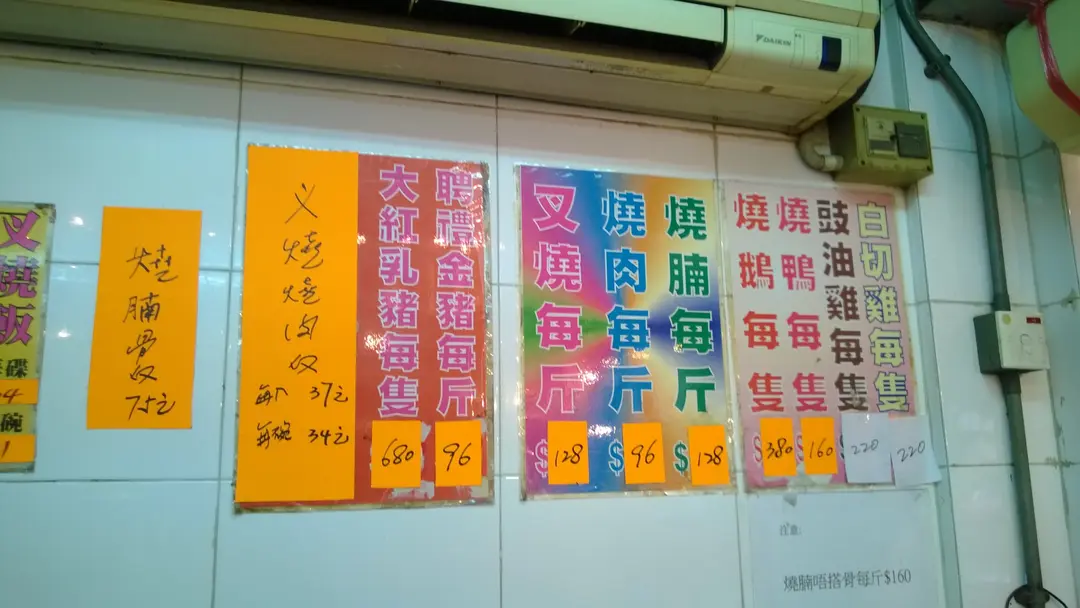 DAIKIN
叉燒飯
碗
燒腩骨飯
75元
义燒燒肉飯
37元
每碗 34元
大紅乳豬每隻
680
聘禮金豬每斤
96
叉燒每斤
$128
燒肉每斤
$96
燒腩每斤
$128
燒鵝每隻
$380
燒鴨每隻
$160
豉油雞每隻
220
白切雞每隻
220
注意:
燒腩唔搭骨每斤$160